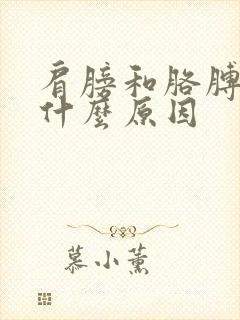 肩膀和胳膊
什麼原因
慕小薰